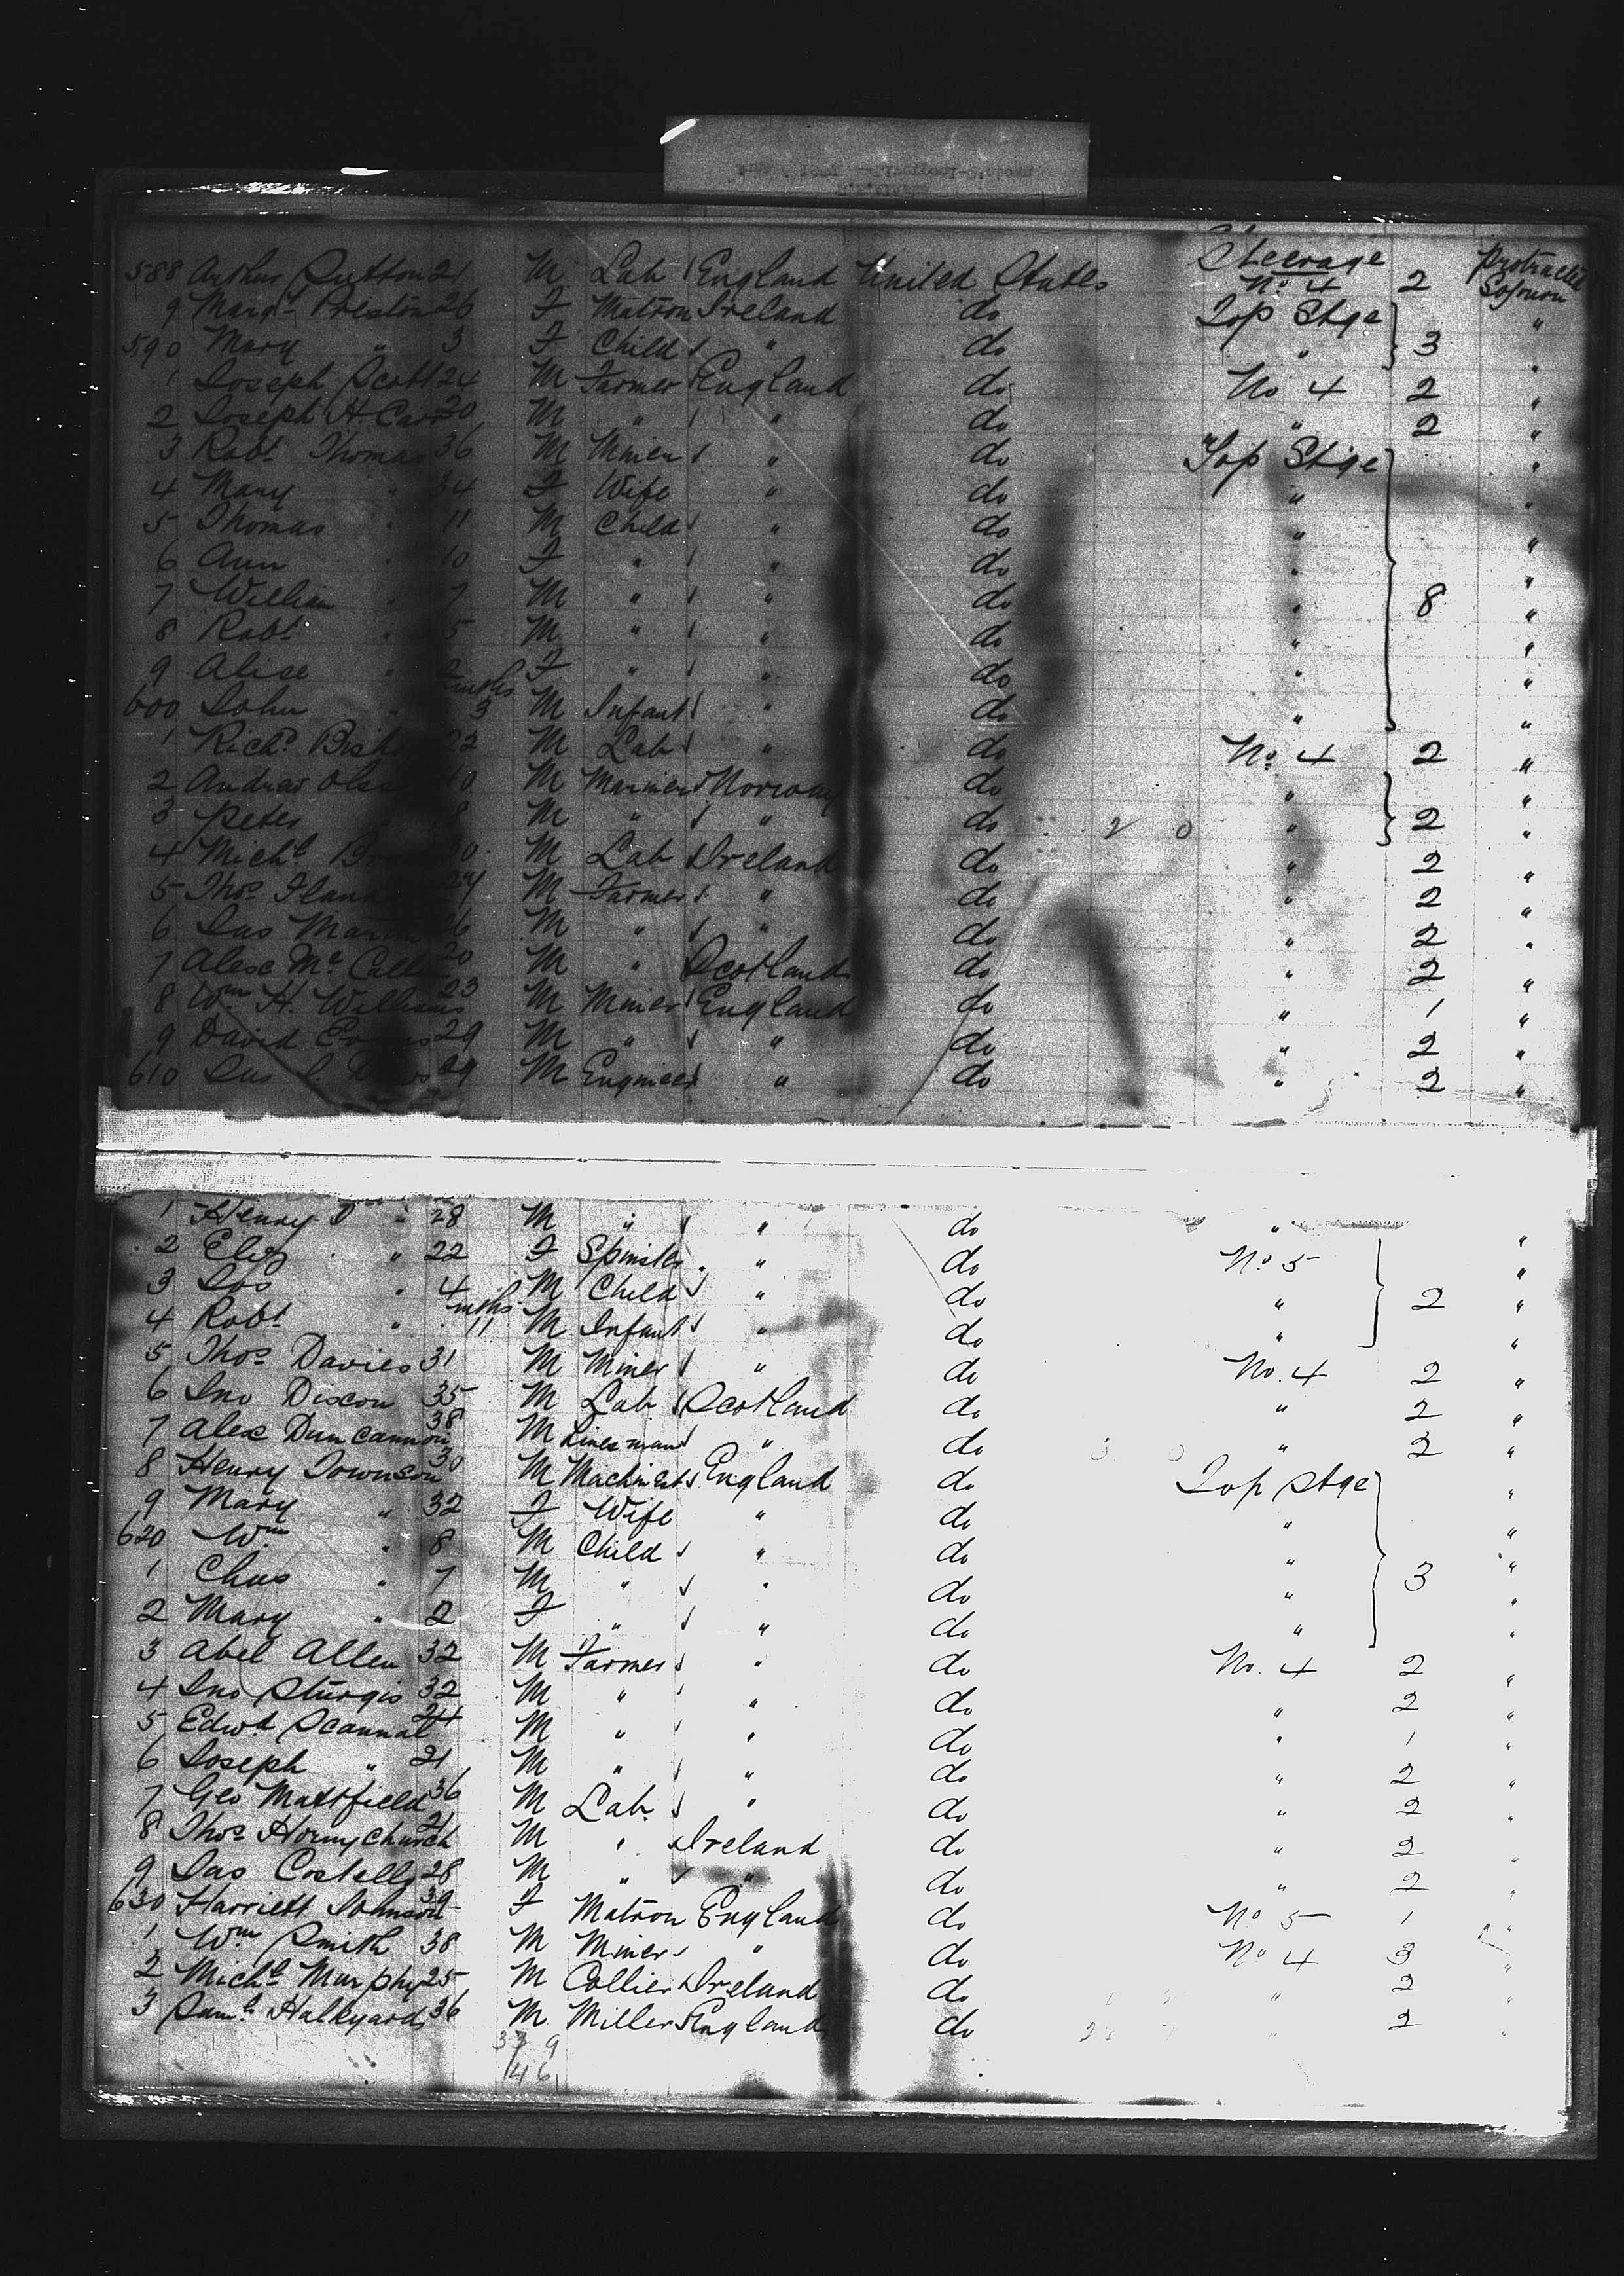 588 Arthur Sutton 21 M Lab England United States Steerage No 4 2 Protracted Sojourn
9 Margt Preston 26 F Matron Ireland do Top Stge "
590 Mary " 3 F Child " do " 3 "
1 Joseph Scott 24 M Farmer England do No 4 2 "
2 Joseph H. 30 M " " do " 2 "
3 Robt Thomas 36 M Miner " do Top Stge "
4 Mary " 34 F Wife " do " "
5 Thomas " 11 M Child " do " "
6 Ann " 10 F " " do " "
7 William " 7 M " " do " 8 "
8 Robt " 5 M " " do " "
9 Alice " 2 F " " do " "
600 John " mths 3 M Infant " do " "
1 Richd 22 M Lab " do No 4 2 "
2 Andreas 40 M Mariner Norway do " "
3 Peter 8 M " " do 2 0 " 2 "
4 Michl 30 M Lab Ireland do " 2 "
5 Thos M Farmer " do " 2 "
6 Jas 26 M " " do " 2 "
7 Alex Mc 20 M " Scotland do " 2 "
8 Wm H. Williams 23 M Miner England do " 1 "
9 David 29 M " " do " 2 "
610 Jas M Engineer " do " 2 "
1 Henry " 28 M " " do " "
2 Eliz " 22 F Spinster " do No 5 "
3 Jos " 4 M Child " do " 2 "
4 Robt " mths 11 M Infant " do " "
5 Thos Davies 31 M Miner " do No. 4 2 "
6 Jno Dixon 35 M Lab Scotland do " 2 "
7 Alex Duncannon 38 M Linesman " do 3 0 " 2 "
8 Henry Townson 30 M Machinist England do Top Stge "
9 Mary " 32 F Wife " do " "
620 Wm " 8 M Child " do " "
1 Chas " 7 M " " do " 3 "
2 Mary " 2 F " " do " "
3 Abel Allen 32 M Farmer " do No. 4 2 "
4 Jno Sturgis 32 M " " do " 2 "
5 Edwd Scannal 24 M " " do " 1 "
6 Joseph " 21 M " " do " 2 "
7 Geo Mattfield 36 M Lab " do " 2 "
8 Thos Hornychurch 21 M " Ireland do " 2 "
9 Jas Costello 28 M " " do " 2 "
630 Harriett Johnson 39 F Matron England do No 5 1 "
1 Wm Smith 38 M Miner " do No 4 3 "
2 Michl Murphy 25 M Collier Ireland do " 2 "
3 Saml Halkyard 36 M Miller England do " 2 "
33 9
46